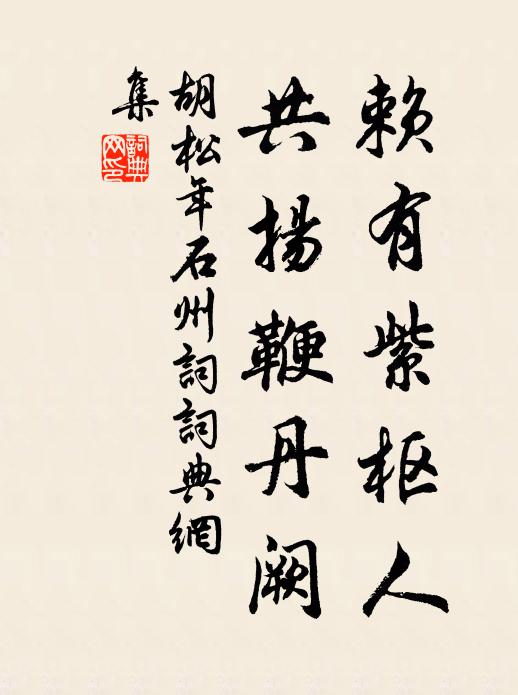 賴有紫枢人
共揚鞭丹阙
胡松年石州詞詞典網
集
詞典
网印